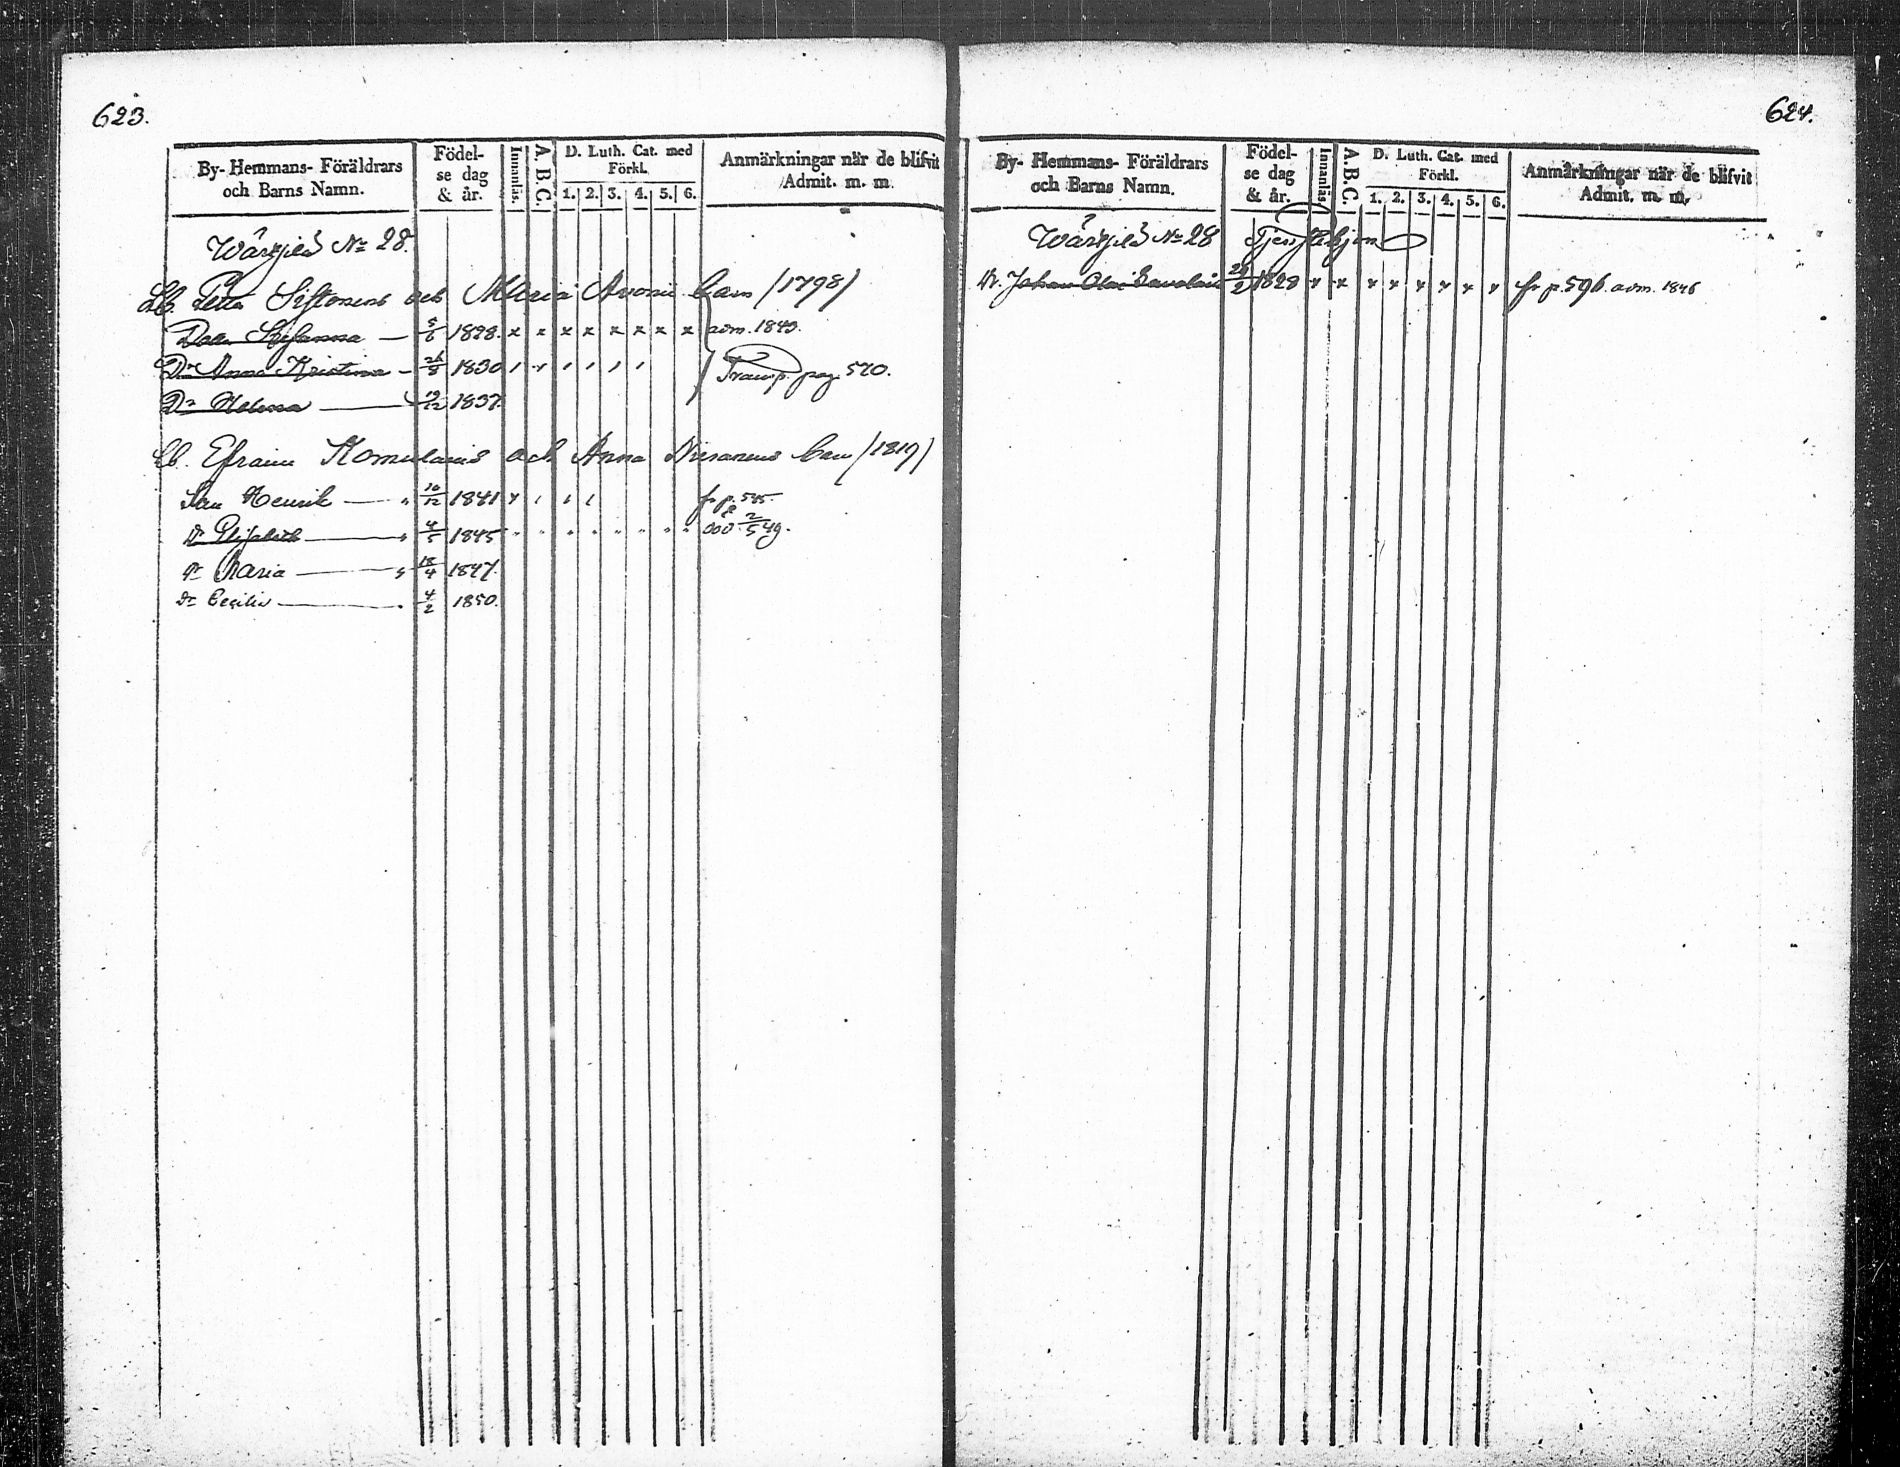 623.
By- Hemmans- Föräldrars och Barns Namn.
Födelse dag & år.
Innanläs.
A.B.C.
D. Luth. Cat. med Förkl.
1. 2. 3. 4. 5. 6.
Anmärkningar när de blifvit Admit. m. m.
Wärtjilä No 28.
Lb. Petter Siftonens och Maria barn /1798/
Dottr Stefanna — 5/6 1828. x x x x x x x x adm. 1843.
Dr Anna Kristina — 26/8 1830
Transp. pag. 570.
Dr Helena — 19/12 1837
Lb. Efraim Komulains och Anna barn /1819/
Son Henrik — " 16/12 1841 fr p. 545.
Dr Elisabeth — " 4/5 1845 död 2/5 49.
Dr Maria — " 18/4 1847.
Dr Cecilia — " 4/2 1850.
624.
By- Hemmans- Föräldrars och Barns Namn.
Födelse dag & år.
Innanläs.
A.B.C.
D. Luth. Cat. med Förkl.
1. 2. 3. 4. 5. 6.
Anmärkningar när de blifvit Admit. m. m.
Wärtjilä No 28 Tjenstehjon
Dr. Johan Olai 1828 x x x x x x x x fr p. 596. adm. 1846